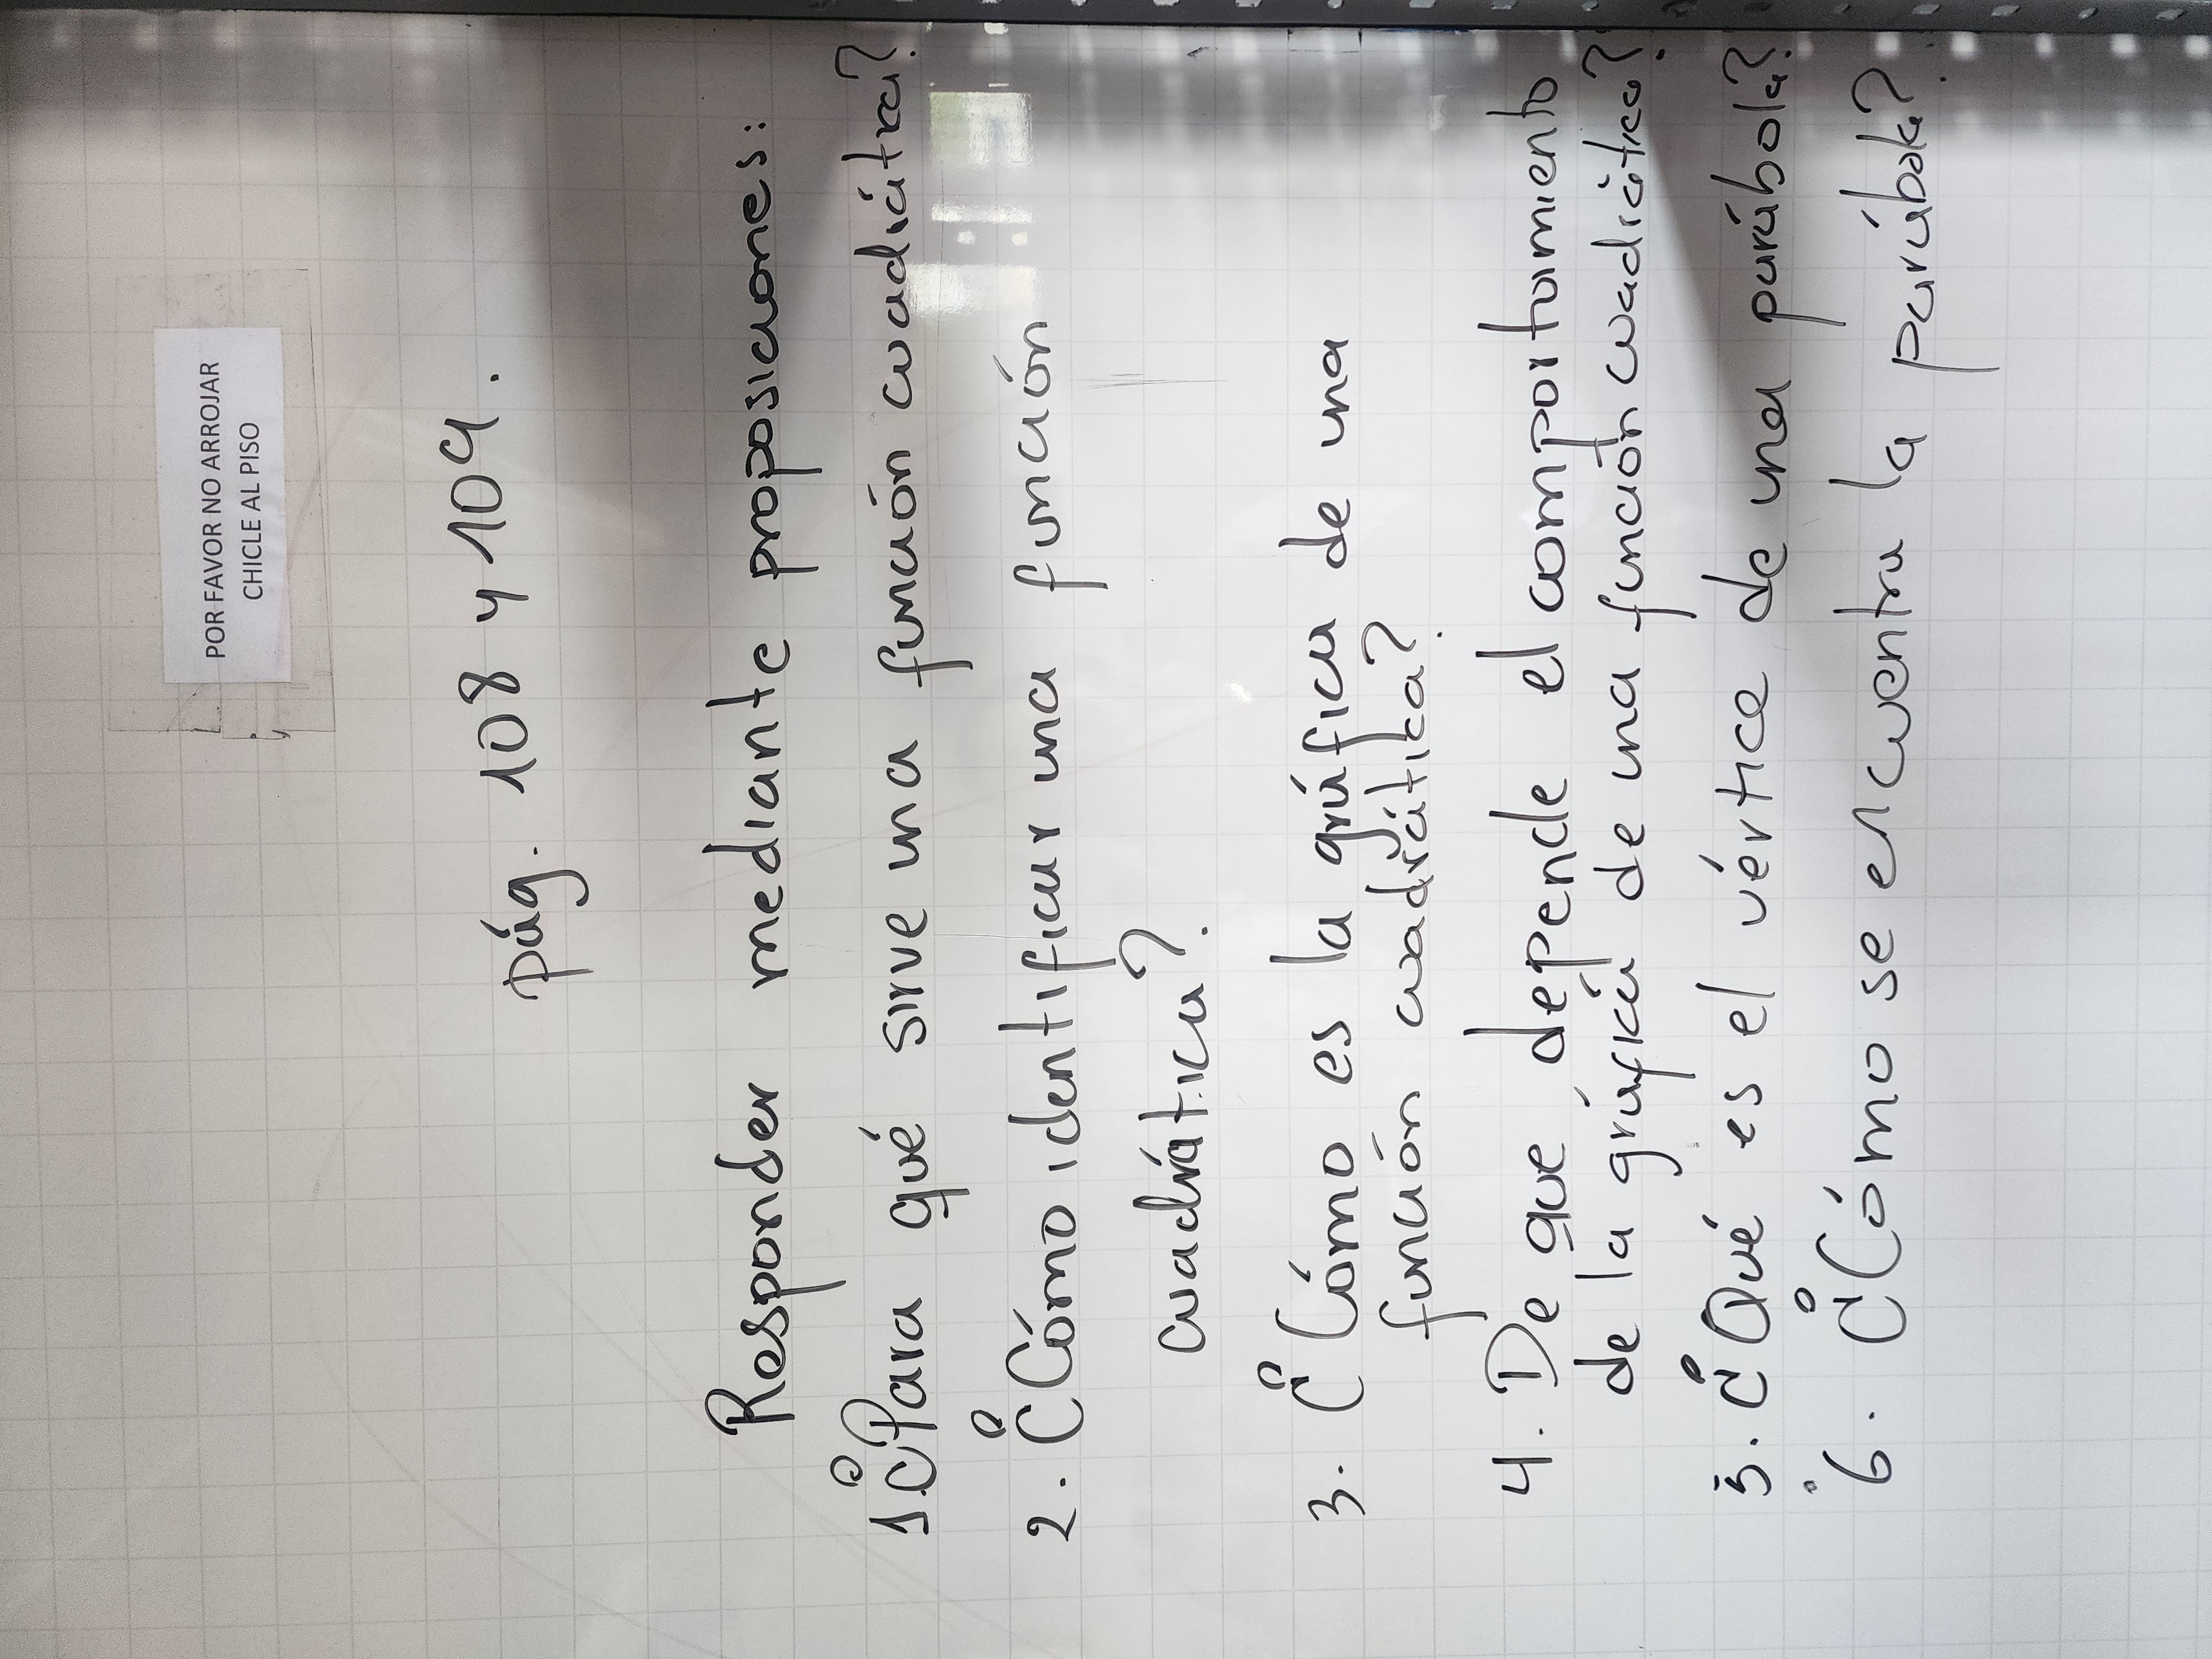 POR FAVOR NO ARROJAR
CHICLE AL PISO
pág. 108 y 109.
Responder mediante proposiciones:
1. ¿Para qué sirve una función cuadrática?
2. ¿Cómo identificar una función
cuadrática?
3. ¿Cómo es la gráfica de una
función cuadrática?
4. De que depende el comportamiento
de la gráfica de una función cuadrática?
5. ¿Qué es el vértice de una parábola?
6. ¿Cómo se encuentra la parábola?